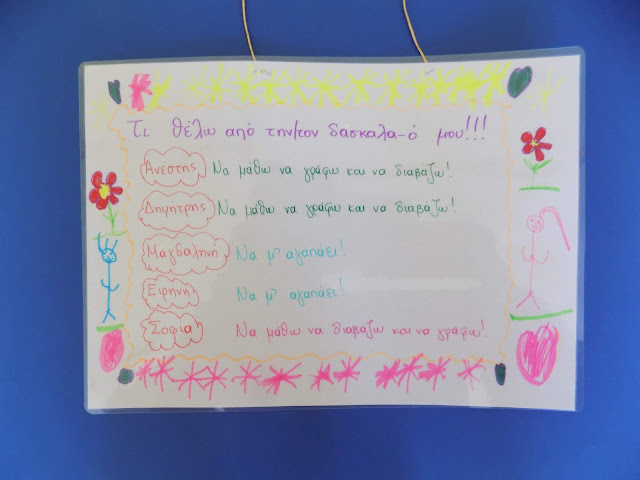 Τι θέλω από την/τον δασκάλα-ό μου!!!
Ανέστης Να μάθω να γράφω και να διαβάζω!
Δημήτρης Να μάθω να γράφω και να διαβάζω!
Μαγδαληνή Να μ' αγαπάει!
Ειρήνη Να μ' αγαπάει!
Σοφία Να μάθω να διαβάζω και να γράφω!